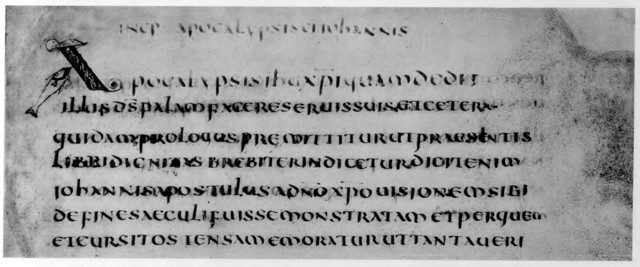 INCP APOCALYPSIS IOHANNIS
APOCALYPSIS IHU XPI QUAM DEDIT
ILLI DS PALAM FACERE SERUIS SUIS ET CETERA
QUIDAM PROLOGUS PREMITTITUR UT PRAESENTIS
LIBRI DIGNITAS BREBITER INDICETUR DICIT ENIM
IOHANNIS APOSTULUS A DNO XPO UISIONEM SIBI
DE FINE SAECULI FUISSE MONSTRATAM ET PER QUEM
ET CUR SIT OSTENSA MEMORATUR UT TANTA UERI